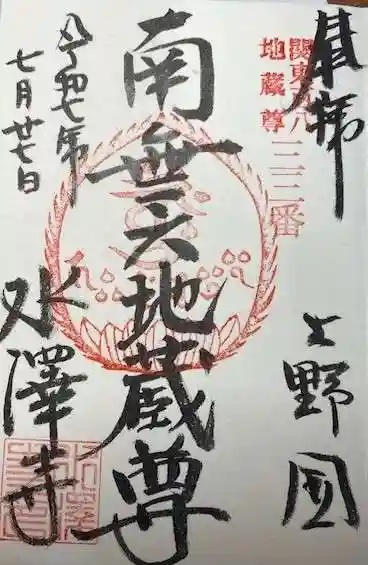 奉拝
上野國
関東百八
地蔵尊
一三番
南無六地蔵尊
令和七年
七月廿七日
水澤寺